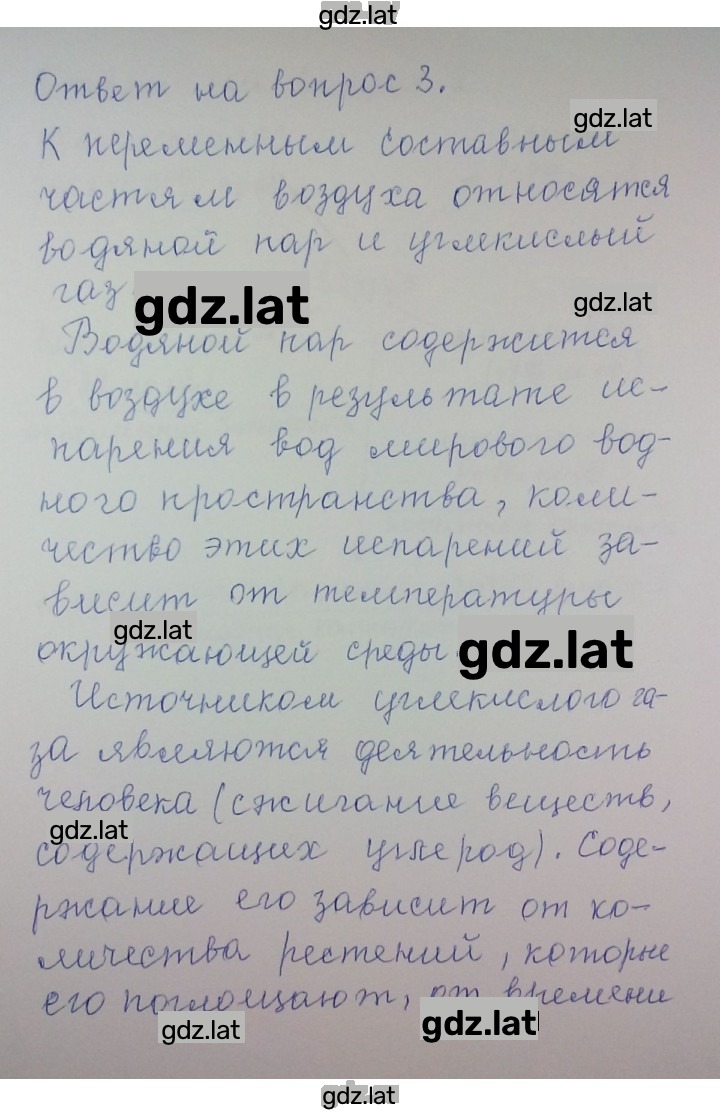 gdz.lat
Ответ на вопрос 3.
gdz.lat
К переменным составным
частям воздуха относятся
водяной пар и углекислый
газ.
gdz.lat
gdz.lat
Водяной пар содержится
в воздухе в результате ис-
парения вод мирового вод-
ного пространства, коли-
чество этих испарений за-
висит от температуры
gdz.lat
окружающей среды
gdz.lat
Источником углекислого га-
за являются деятельность
человека (сжигание веществ,
gdz.lat
содержащих углерод). Соде-
ржание его зависит от ко-
личества рестений, которые
его поглощают, от времени
gdz.lat
gdz.lat
gdz.lat